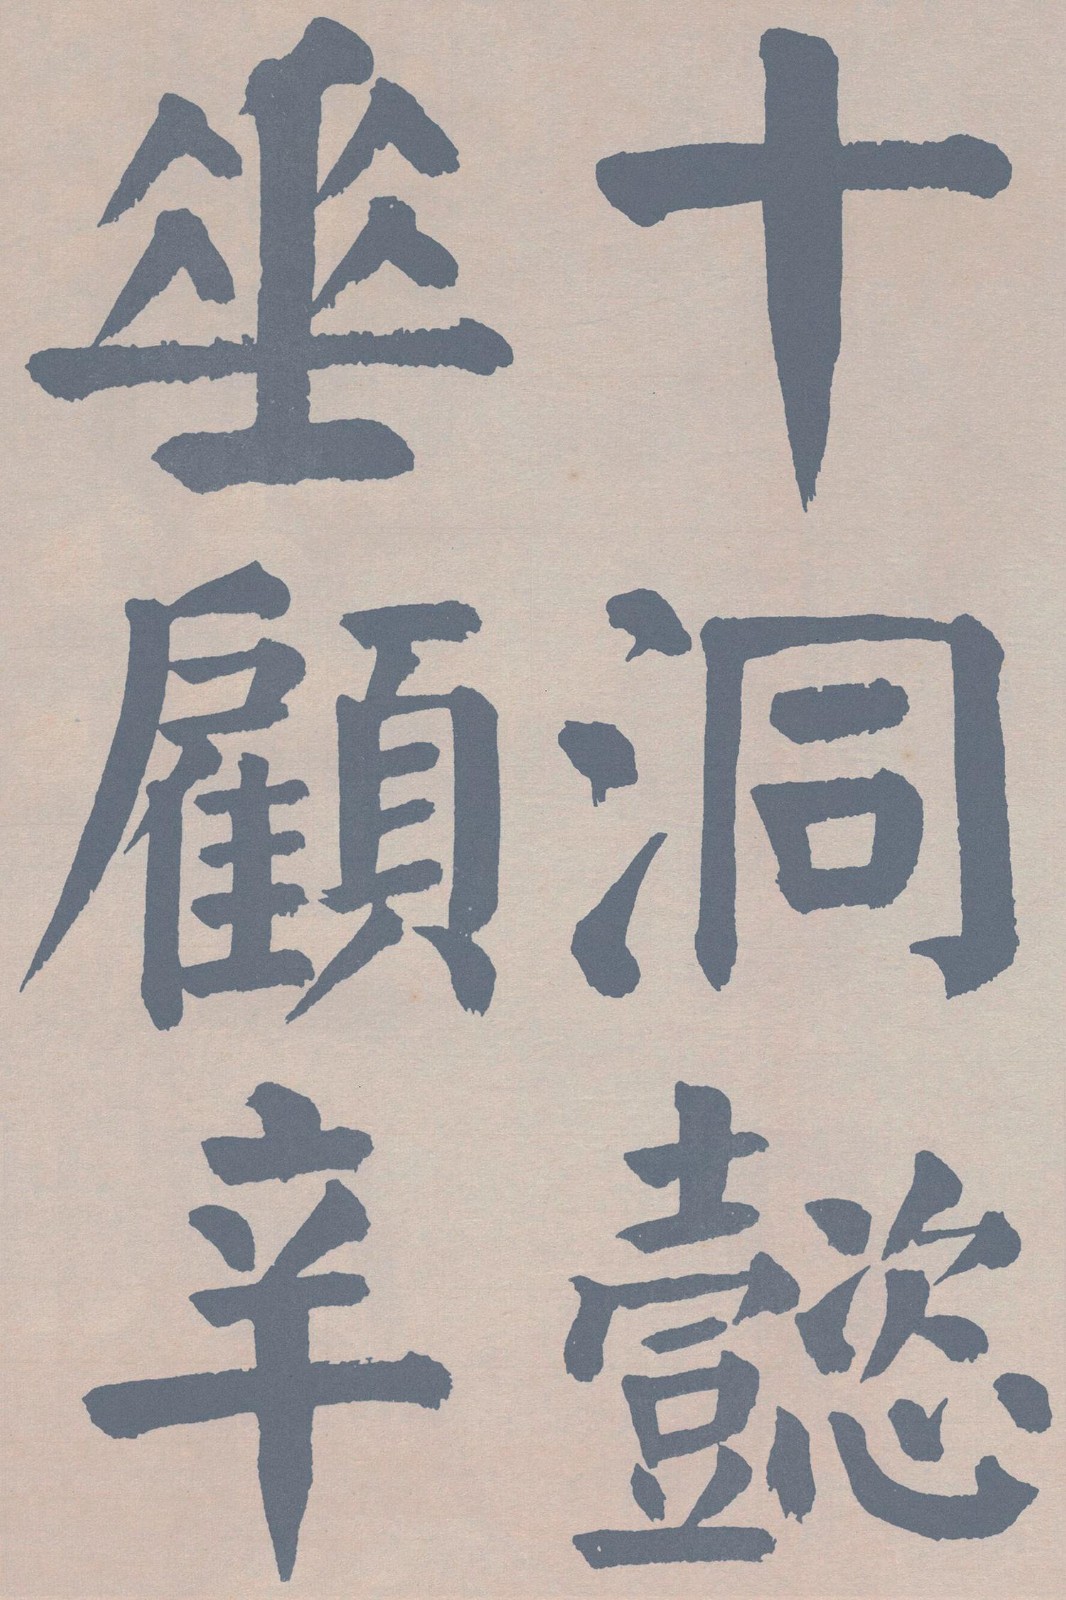 十洞懿
埀顧辛